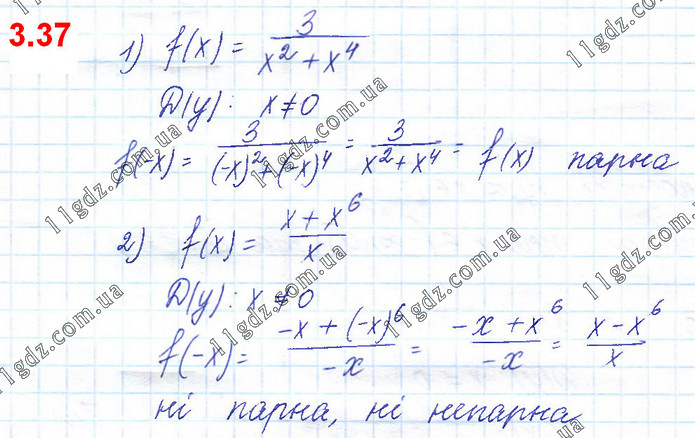 3.37
1) f(x) = 3/(x² + x⁴)
D(y): x ≠ 0
f(-x) = 3/((-x)² + (-x)⁴) = 3/(x² + x⁴) = f(x) парна
2) f(x) = (x + x⁶)/x
D(y): x ≠ 0
f(-x) = (-x + (-x)⁶)/(-x) = (-x + x⁶)/(-x) = (x - x⁶)/x
ні парна, ні непарна
11gdz.com.ua
11gdz.com.ua
11gdz.com.ua
11gdz.com.ua
11gdz.com.ua
11gdz.com.ua